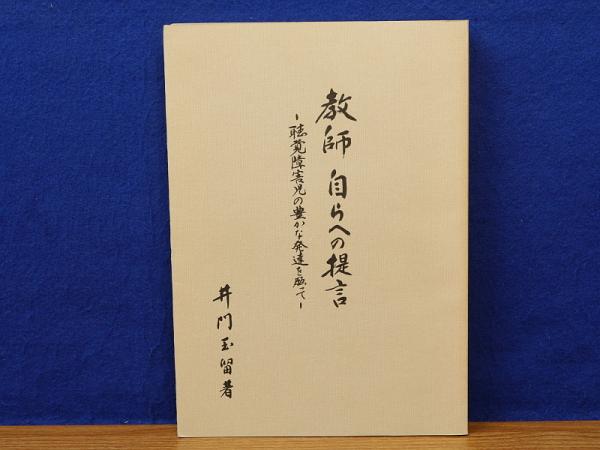 教師 自らへの提言
-聴覚障害児の豊かな発達を願って-
井門玉留著